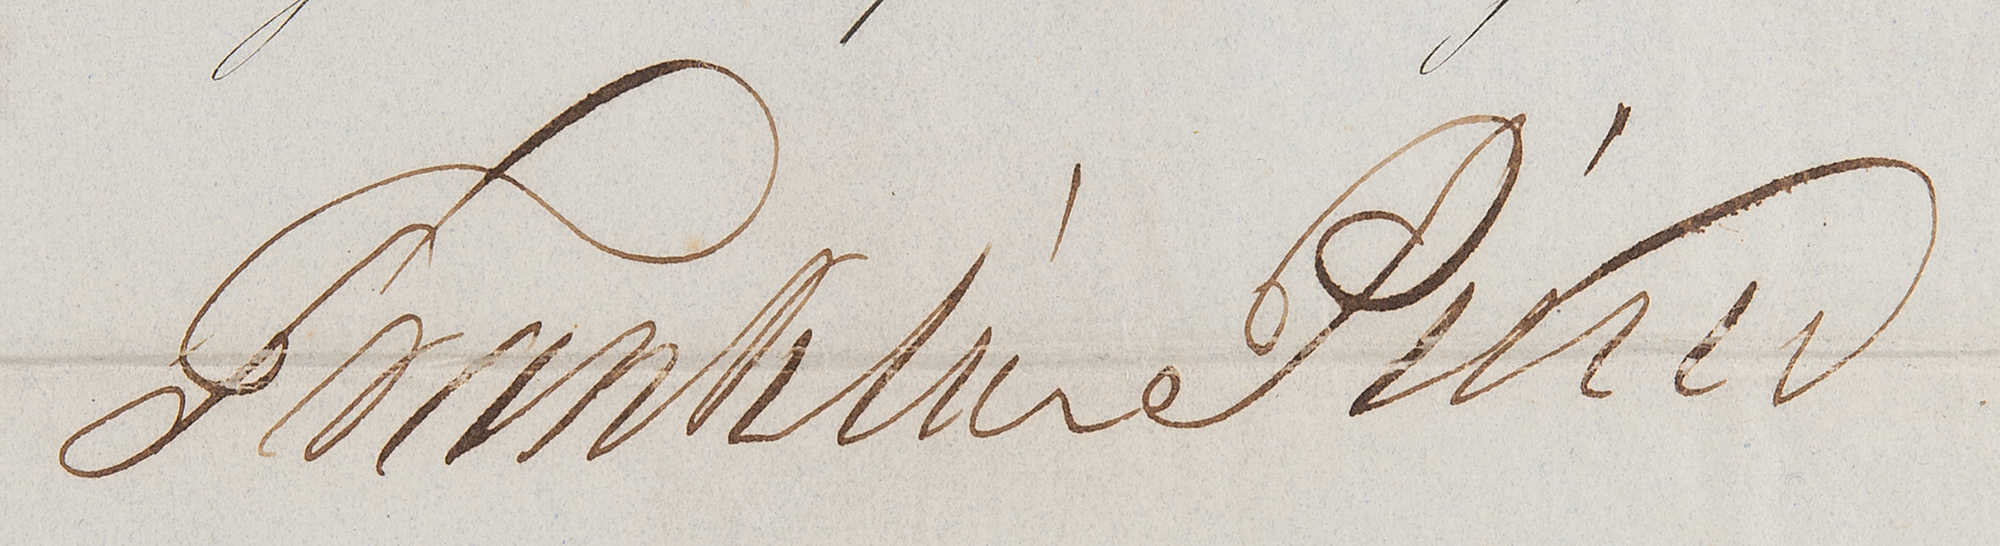 Franklin Pierce